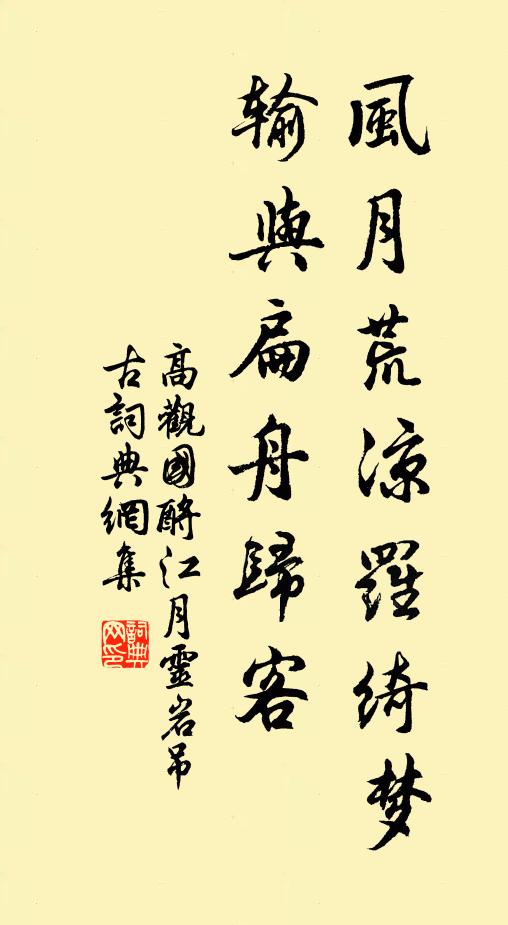 風月荒涼羅綺梦
输與扁舟歸客
高觀國酹江月靈岩吊
古詞典網集
詞典网印